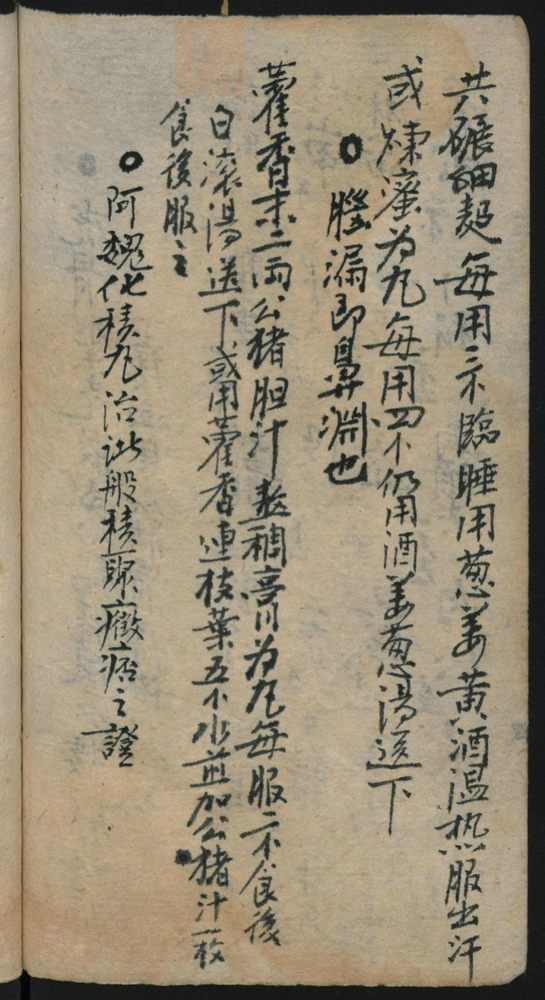 共碾細麪每用三不臨睡用葱姜黄酒温热服出汗
或煉蜜为丸每用四不仍用酒姜葱湯送下
○ 腦漏即鼻淵也
藿香末二両公猪胆汁熬稠為丸每服二不食後
白滚湯送下或用藿香連枝葉五不水煎加公猪汁一枚
食後服之
○ 阿魏化積丸治諸般積聚癥痞之證